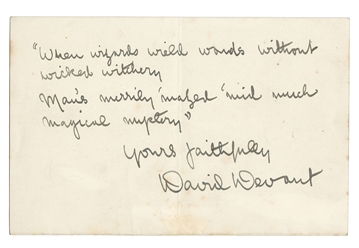 "When wizards wield wands without
wicked witchery
Man's merrily 'mazed 'mid much
magical mystery"
Yours faithfully
David Devant